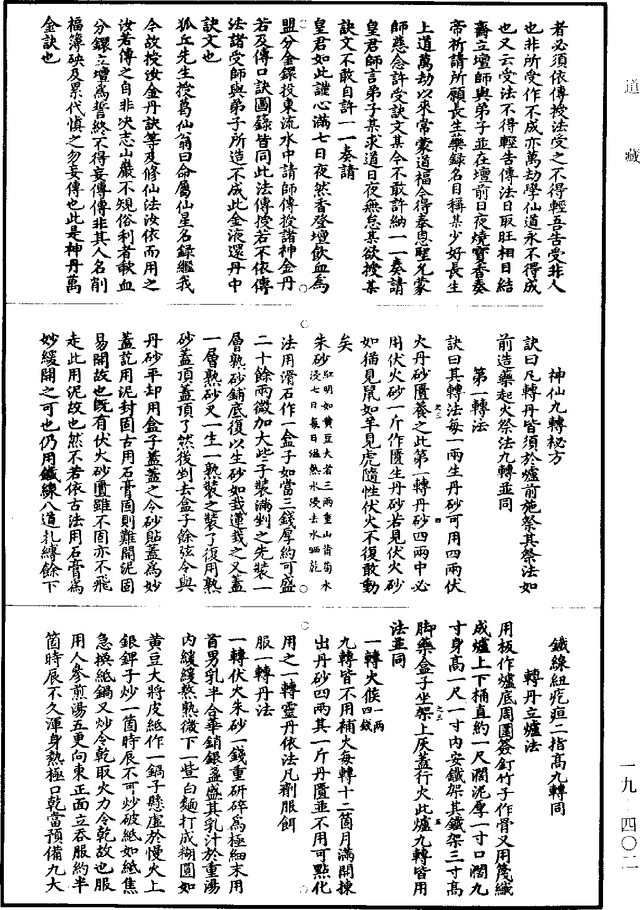 道藏
者必須依傳授法受之不得輕吾告受非人
也非所受作不成亦萬劫學仙道永不得成
也又云受法不得輕告傳法日取旺相日結
齋立壇師與弟子並在壇前日夜燒寶香奏
帝祈請所願長生藥錄名目稱某少好長生
上道萬劫以來常蒙道福今得奉見聖允蒙
師慈念許受訣文某今不敢許納一一奏請
皇君師言弟子某求道日夜無怠其欲授某
訣文不敢自許一一奏請
皇君如此謹心滿七日夜然香登壇飲血為
盟分金鐶投東流水中請師傳授諸神金丹
若及傳口訣圖錄皆同此法傳授若不依傳
法諸受師與弟子所造不成此金液還丹中
訣文也
狐丘先生授葛仙翁曰命屬仙星名錄繼我
今故授汝金丹訣等及修仙法汝依而用之
汝若傳之自非決志山巖不規俗利者歃血
分鐶立壇為誓終不得妄傳傳非其人名削
福簿殃及累代慎之勿妄傳也此是神丹萬
金訣也
神仙九轉秘方
訣曰凡轉丹皆須於爐前施祭其祭法如
前造藥起火祭法九轉並同
第一轉法
訣曰其轉法每一兩生丹砂可用四兩伏
火丹砂匱養之此第一轉丹砂四兩中必
用伏火砂一斤作匱生丹砂若見伏火砂
如猫見鼠如羊見虎隨性伏火不復敢動
矣
朱砂紅明如黄豆大者三兩重山茼蒿水浸七日每日溫熱水浸去水晒乾
法用滑石作一盒子如當三錢厚約可盛
二十餘兩微加大些子裝滿剉之先裝一
層熟砂鋪底復以生砂如栽蓮栽之又蓋
一層熟砂又一生一熟裝之裝了復用熟
砂蓋頂蓋頂了然後剉去盒子餘弦令與
丹砂平却用盒子蓋蓋之令砂貼蓋為妙
蓋訖用泥封固古用石膏固則難開泥固
易開故也既有伏火砂匱雖不固亦不飛
走此用泥故也然不若依古法用石膏為
妙緩開之可也仍用鐵線八道扎縛餘下
鐵線紐疙疸二指高九轉同
轉丹立爐法
用板作爐底周圍簽釘竹子作骨又用篾織
成爐上下桶直約一尺濶泥厚一寸口濶九
寸身高一尺一寸内安鐵架其鐵架三寸高
脚藥盒子坐架上灰蓋行火此爐九轉皆用
法並同
一轉火候一兩四錢
九轉皆不用補火每轉十二箇月滿開揀
出丹砂四兩其一斤丹匱並不用可點化
用之一轉靈丹依法凡劑服餌
服一轉丹法
一轉伏火朱砂一錢重研碎為極細末用
首男乳半合華銷銀盞盛其乳汁於重湯
内緩緩熬熟微下一些白麵打成糊圓如
黄豆大將皮紙作一鍋子懸虛於慢火上
銀錍子炒一箇時辰不可炒破紙如紙焦
急換紙鍋又炒令乾取火力令乾故也服
用人參煎湯五更向東正面立吞服約半
箇時辰不久渾身熱極口乾當預備九大
一九·四〇二